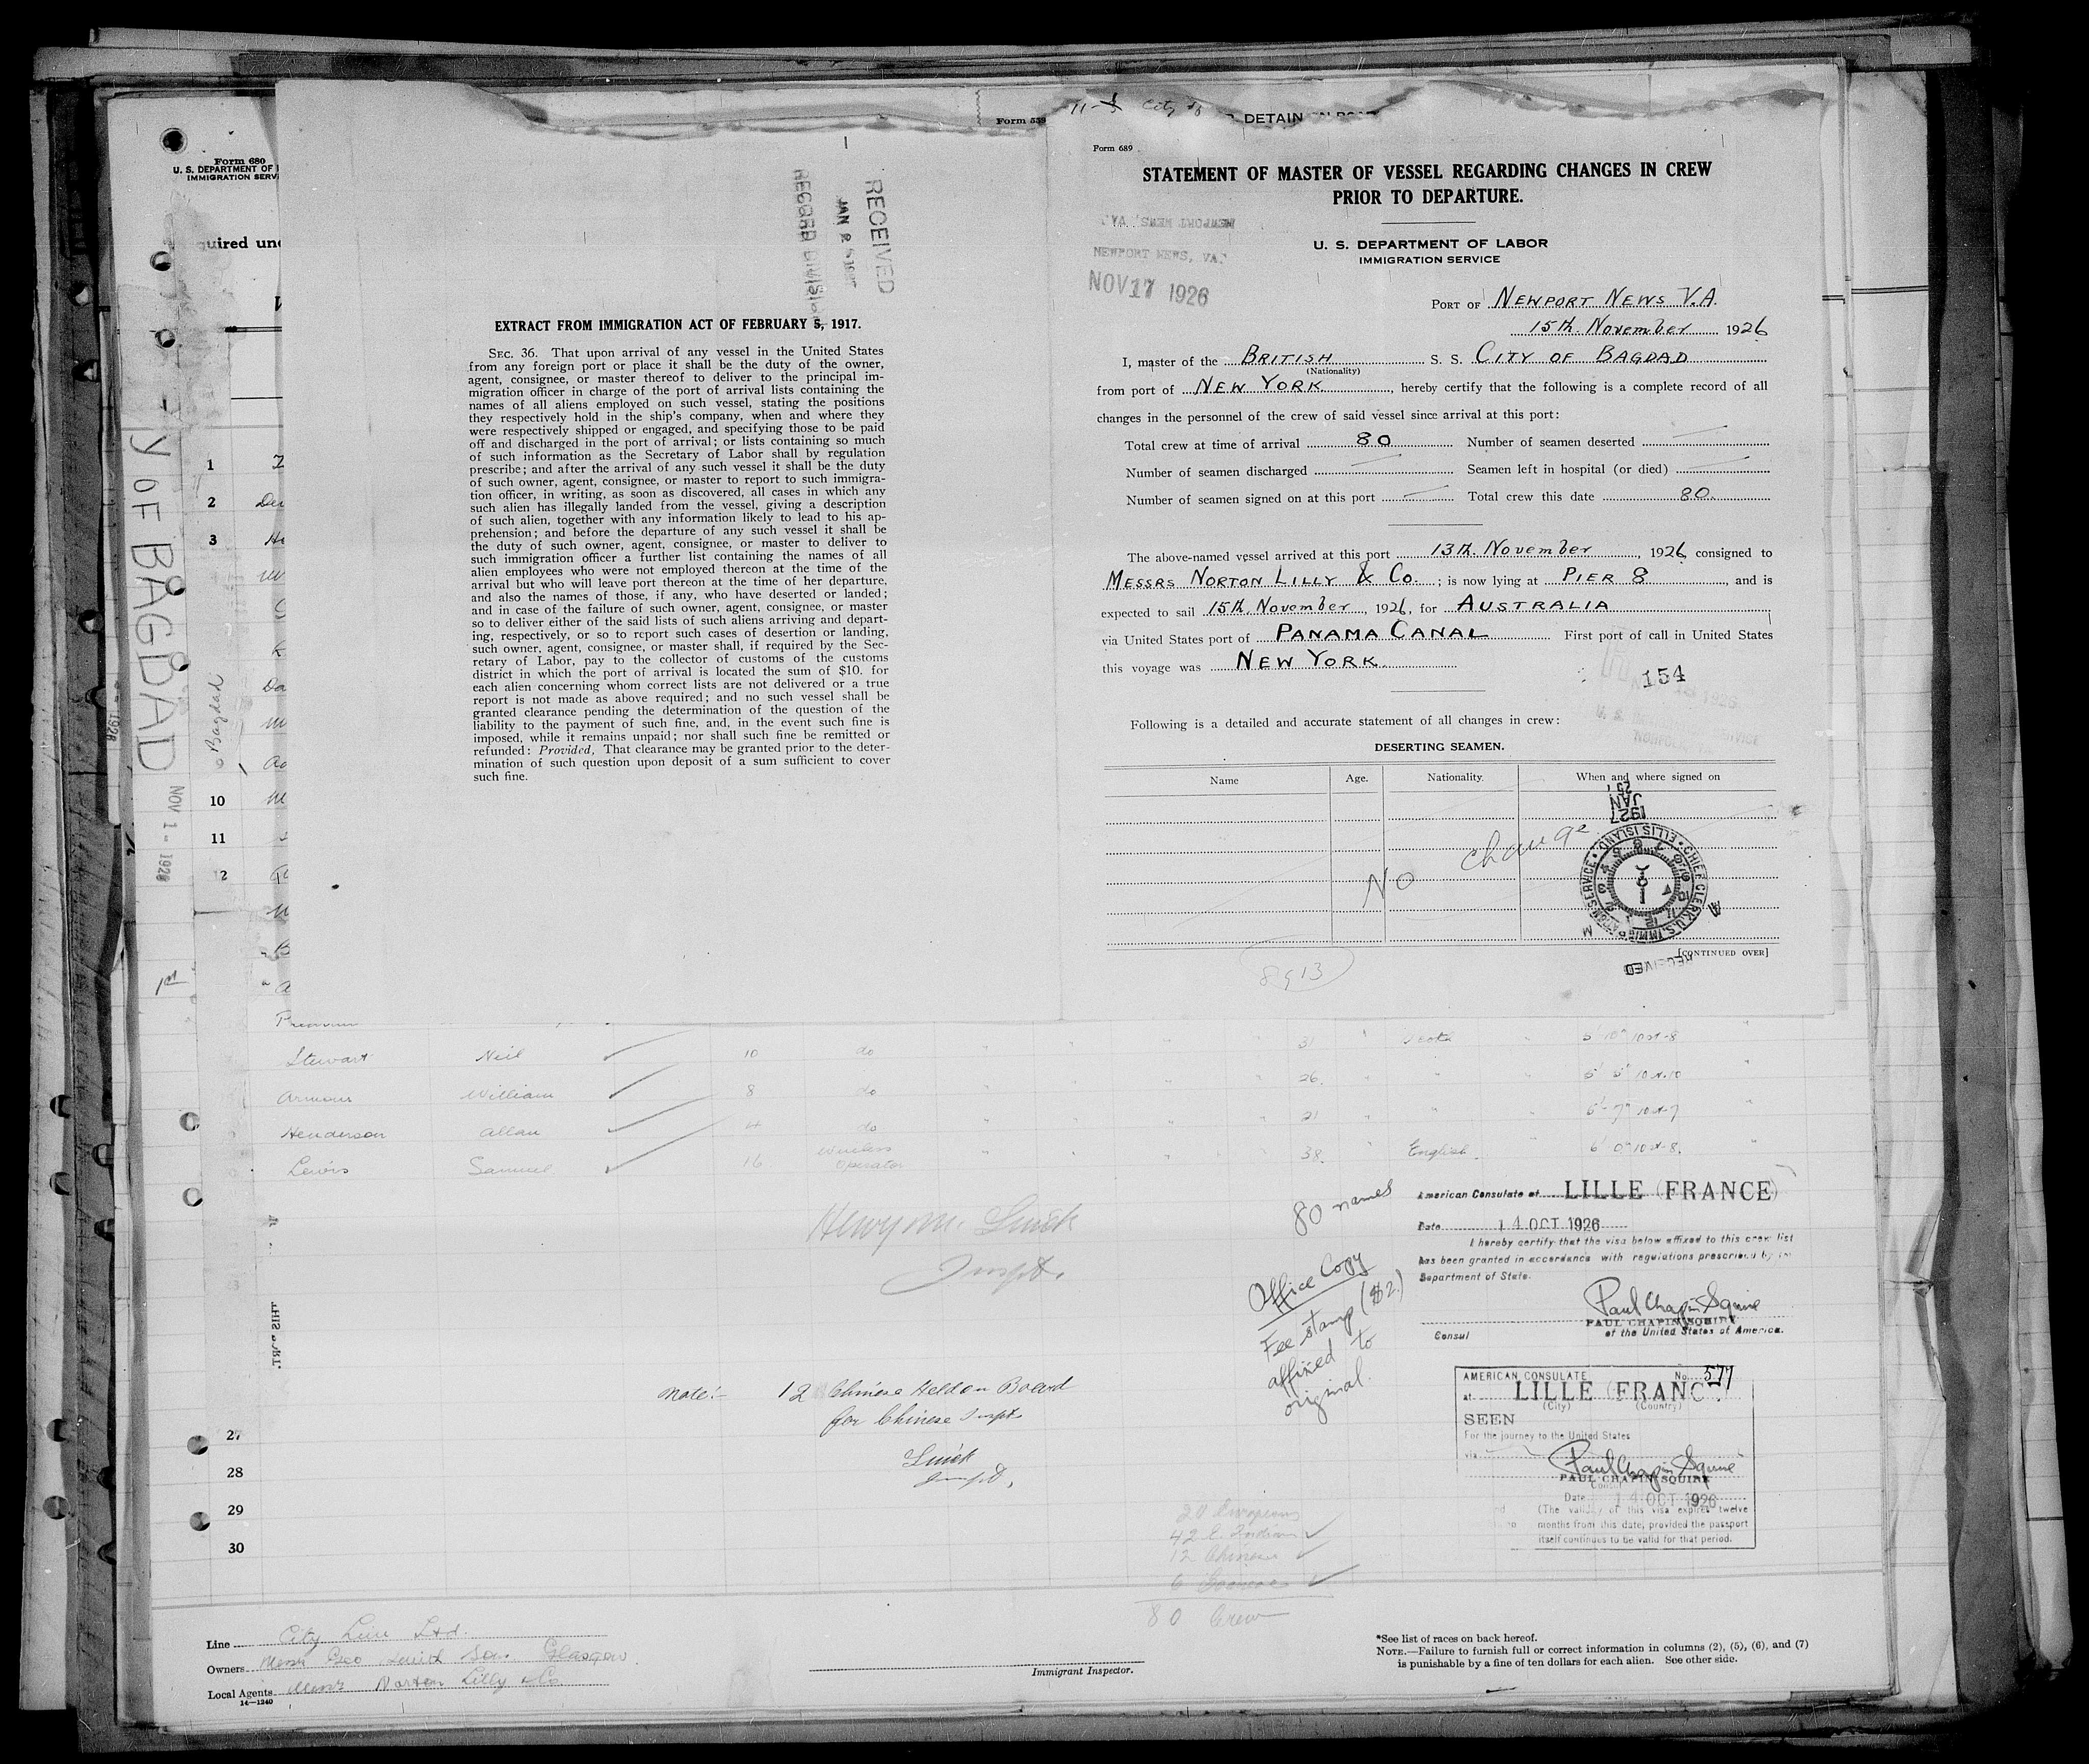 Form 680
U. S. DEPARTMENT OF
IMMIGRATION SERV
quired und
Y OF BAGDAD
NOV 1 - 1926
Bagdad
1
2
3
10
11
12
RECEIVED
JAN
RECORD DIVISI
EXTRACT FROM IMMIGRATION ACT OF FEBRUARY 5, 1917.
SEC. 36. That upon arrival of any vessel in the United States
from any foreign port or place it shall be the duty of the owner,
agent, consignee, or master thereof to deliver to the principal im-
migration officer in charge of the port of arrival lists containing the
names of all aliens employed on such vessel, stating the positions
they respectively hold in the ship's company, when and where they
were respectively shipped or engaged, and specifying those to be paid
off and discharged in the port of arrival; or lists containing so much
of such information as the Secretary of Labor shall by regulation
prescribe; and after the arrival of any such vessel it shall be the duty
of such owner, agent, consignee, or master to report to such immigra-
tion officer, in writing, as soon as discovered, all cases in which any
such alien has illegally landed from the vessel, giving a description
of such alien, together with any information likely to lead to his ap-
prehension; and before the departure of any such vessel it shall be
the duty of such owner, agent, consignee, or master to deliver to
such immigration officer a further list containing the names of all
alien employees who were not employed thereon at the time of the
arrival but who will leave port thereon at the time of her departure,
and also the names of those, if any, who have deserted or landed;
and in case of the failure of such owner, agent, consignee, or master
so to deliver either of the said lists of such aliens arriving and depart-
ing, respectively, or so to report such cases of desertion or landing,
such owner, agent, consignee, or master shall, if required by the Sec-
retary of Labor, pay to the collector of customs of the customs
district in which the port of arrival is located the sum of $10. for
each alien concerning whom correct lists are not delivered or a true
report is not made as above required; and no such vessel shall be
granted clearance pending the determination of the question of the
liability to the payment of such fine, and, in the event such fine is
imposed, while it remains unpaid; nor shall such fine be remitted or
refunded: Provided, That clearance may be granted prior to the deter-
mination of such question upon deposit of a sum sufficient to cover
such fine.
Form 559
City of
DETAIN
Form 689
STATEMENT OF MASTER OF VESSEL REGARDING CHANGES IN CREW
PRIOR TO DEPARTURE.
U. S. DEPARTMENT OF LABOR
IMMIGRATION SERVICE
NEWPORT NEWS, VA.
NEWPORT NEWS, VA.
NOV 17 1926
PORT OF NEWPORT NEWS V.A.
15th. November 1926
I, master of the BRITISH S. S. CITY OF BAGDAD
(Nationality)
from port of NEW YORK, hereby certify that the following is a complete record of all
changes in the personnel of the crew of said vessel since arrival at this port:
Total crew at time of arrival 80 Number of seamen deserted
Number of seamen discharged Seamen left in hospital (or died)
Number of seamen signed on at this port Total crew this date 80.
The above-named vessel arrived at this port 13th. November, 1926, consigned to
MESSRS NORTON LILLY & Co.; is now lying at PIER 8, and is
expected to sail 15th. November, 1926, for AUSTRALIA
via United States port of PANAMA CANAL First port of call in United States
this voyage was NEW YORK.
154
1926
U. S. SERVICE
NORFOLK
Following is a detailed and accurate statement of all changes in crew:
DESERTING SEAMEN.
Name Age. Nationality. When and where signed on
NO change
1927
JAN
CHIEF CLERK U.S. IMMIGRATION SERVICE ELLIS ISLAND
RECEIVED
[CONTINUED OVER]
8913
Stewart Neil 10 do 31 Scotch 5' 10" 10st-8
Armour William 8 do 26. 10st.10
Henderson Allan 4 do 21 5'-7" 10st-7
Lewis Samuel 16 Wireless Operator 38. English. 6' 0" 10st-8.
Inspt.
80 names
Office Copy
Fee stamp ($2.)
affixed to
original.
American Consulate at LILLE (FRANCE)
Date 14 OCT 1926
I hereby certify that the visa below affixed to this crew list
has been granted in accordance with regulations prescribed by
Department of State.
Paul Chapin Squire
PAUL CHAPIN SQUIRE
Consul of the United States of America.
Note:- 12 Chinese Held on Board
for Chinese Inspt
Inspt.
AMERICAN CONSULATE No. 577
at LILLE (FRANC
(City) (Country)
SEEN
For the journey to the United States
via
Paul Chapin Squire
PAUL CHAPIN SQUIRE
Consul
Date 14 OCT 1926
(The validity of this visa expires twelve
months from this date, provided the passport
itself continues to be valid for that period.
27
28
29
30
20 Europeans
42 E. Indians
12 Chinese
6
80 Crew
Line City Line Ltd.
Owners Messrs Geo Smith Sons Glasgow.
Local Agents Messrs Norton Lilly & Co
14—1240
Immigrant Inspector.
*See list of races on back hereof.
NOTE.—Failure to furnish full or correct information in columns (2), (5), (6), and (7)
is punishable by a fine of ten dollars for each alien. See other side.